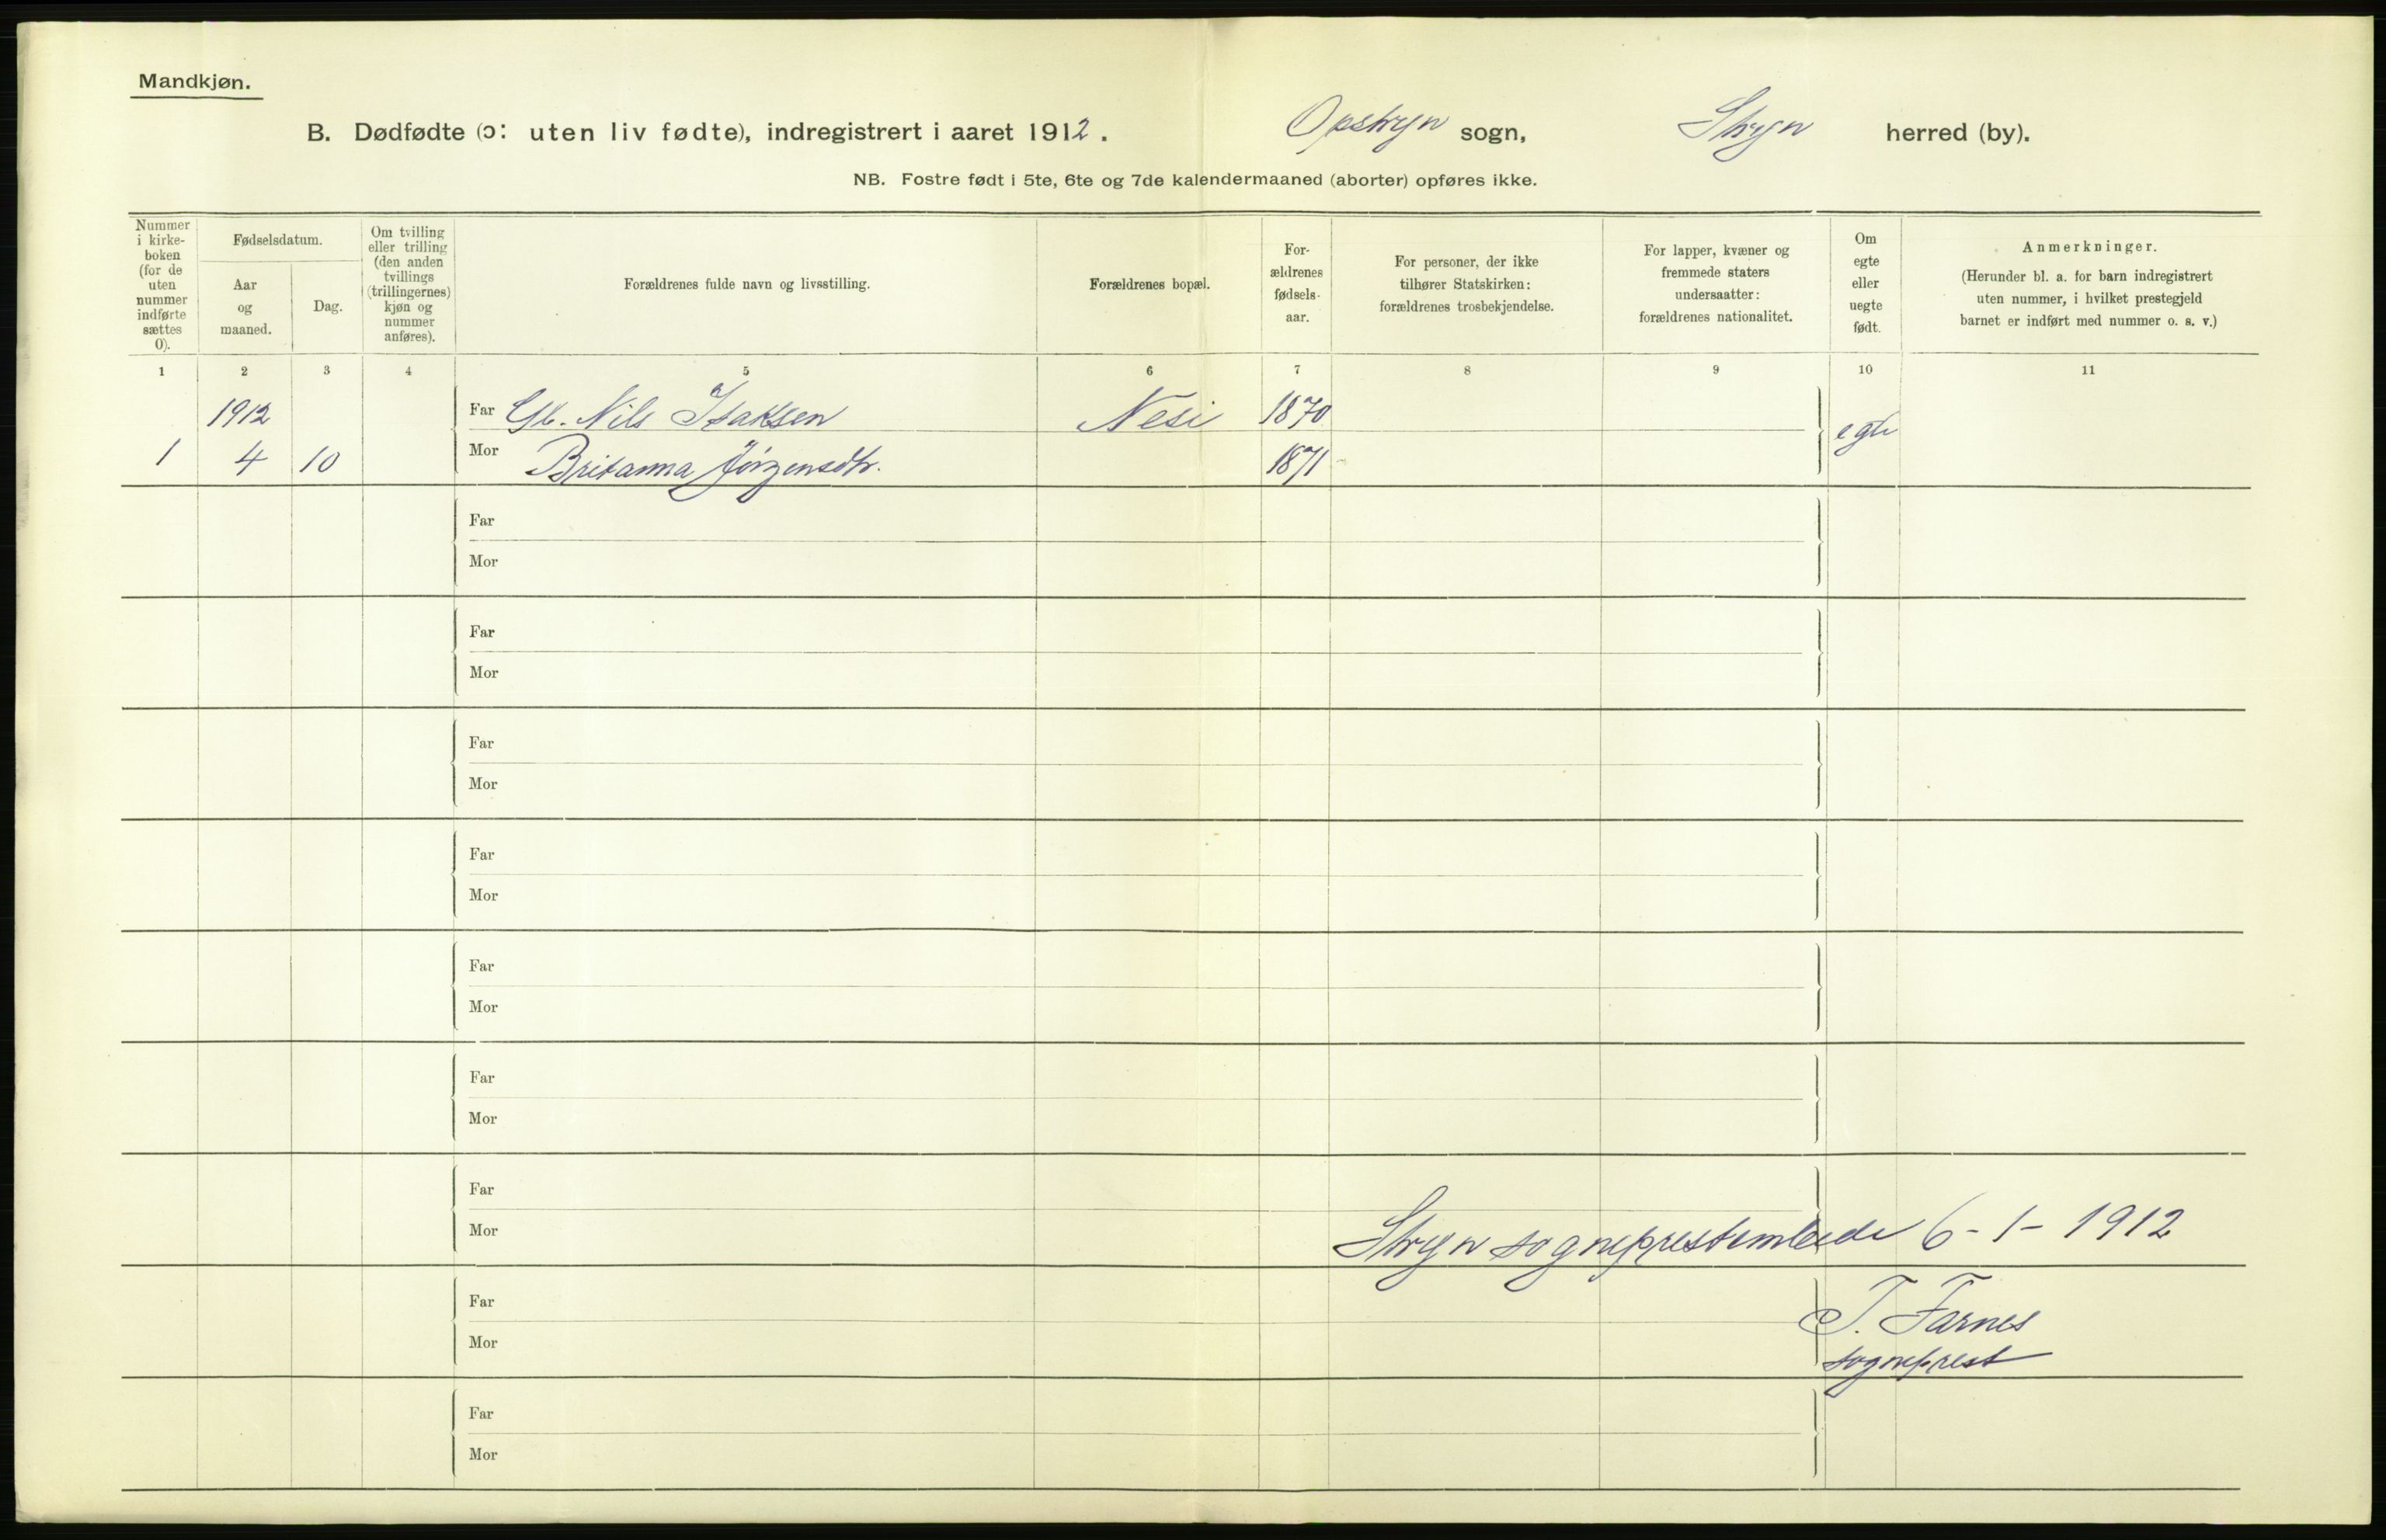 Mandkjøn.
B. Dødfødte (ɔ: uten liv fødte), indregistrert i aaret 1912. Opstryn sogn, Stryn herred (by).
NB. Fostre født i 5te, 6te og 7de kalendermaaned (aborter) opføres ikke.
Nummer
i kirke-
boken
(for de
uten
nummer
indførte
sættes
0).
Fødselsdatum.
Aar
og
maaned.
Dag.
Om tvilling
eller trilling
(den anden
tvillings
(trillingernes)
kjøn og
nummer
anføres).
Forældrenes fulde navn og livsstilling.
Forældrenes bopæl.
For-
ældrenes
fødsels-
aar.
For personer, der ikke
tilhører Statskirken:
forældrenes trosbekjendelse.
For lapper, kvæner og
fremmede staters
undersaatter:
forældrenes nationalitet.
Om
egte
eller
uegte
født.
Anmerkninger.
(Herunder bl. a. for barn indregistrert
uten nummer, i hvilket prestegjeld
barnet er indført med nummer o. s. v.)
1 2 3 4 5 6 7 8 9 10 11
1912 Far Gb. Nils Isaksen Nesi 1870 egte
1 4 10 Mor Britanna Jörgensdtr. 1871
Far
Mor
Far
Mor
Far
Mor
Far
Mor
Far
Mor
Far
Mor
Far
Mor Stryn sogneprestembede 6-1-1912
Far T. Farnes
Mor sogneprest
Far
Mor